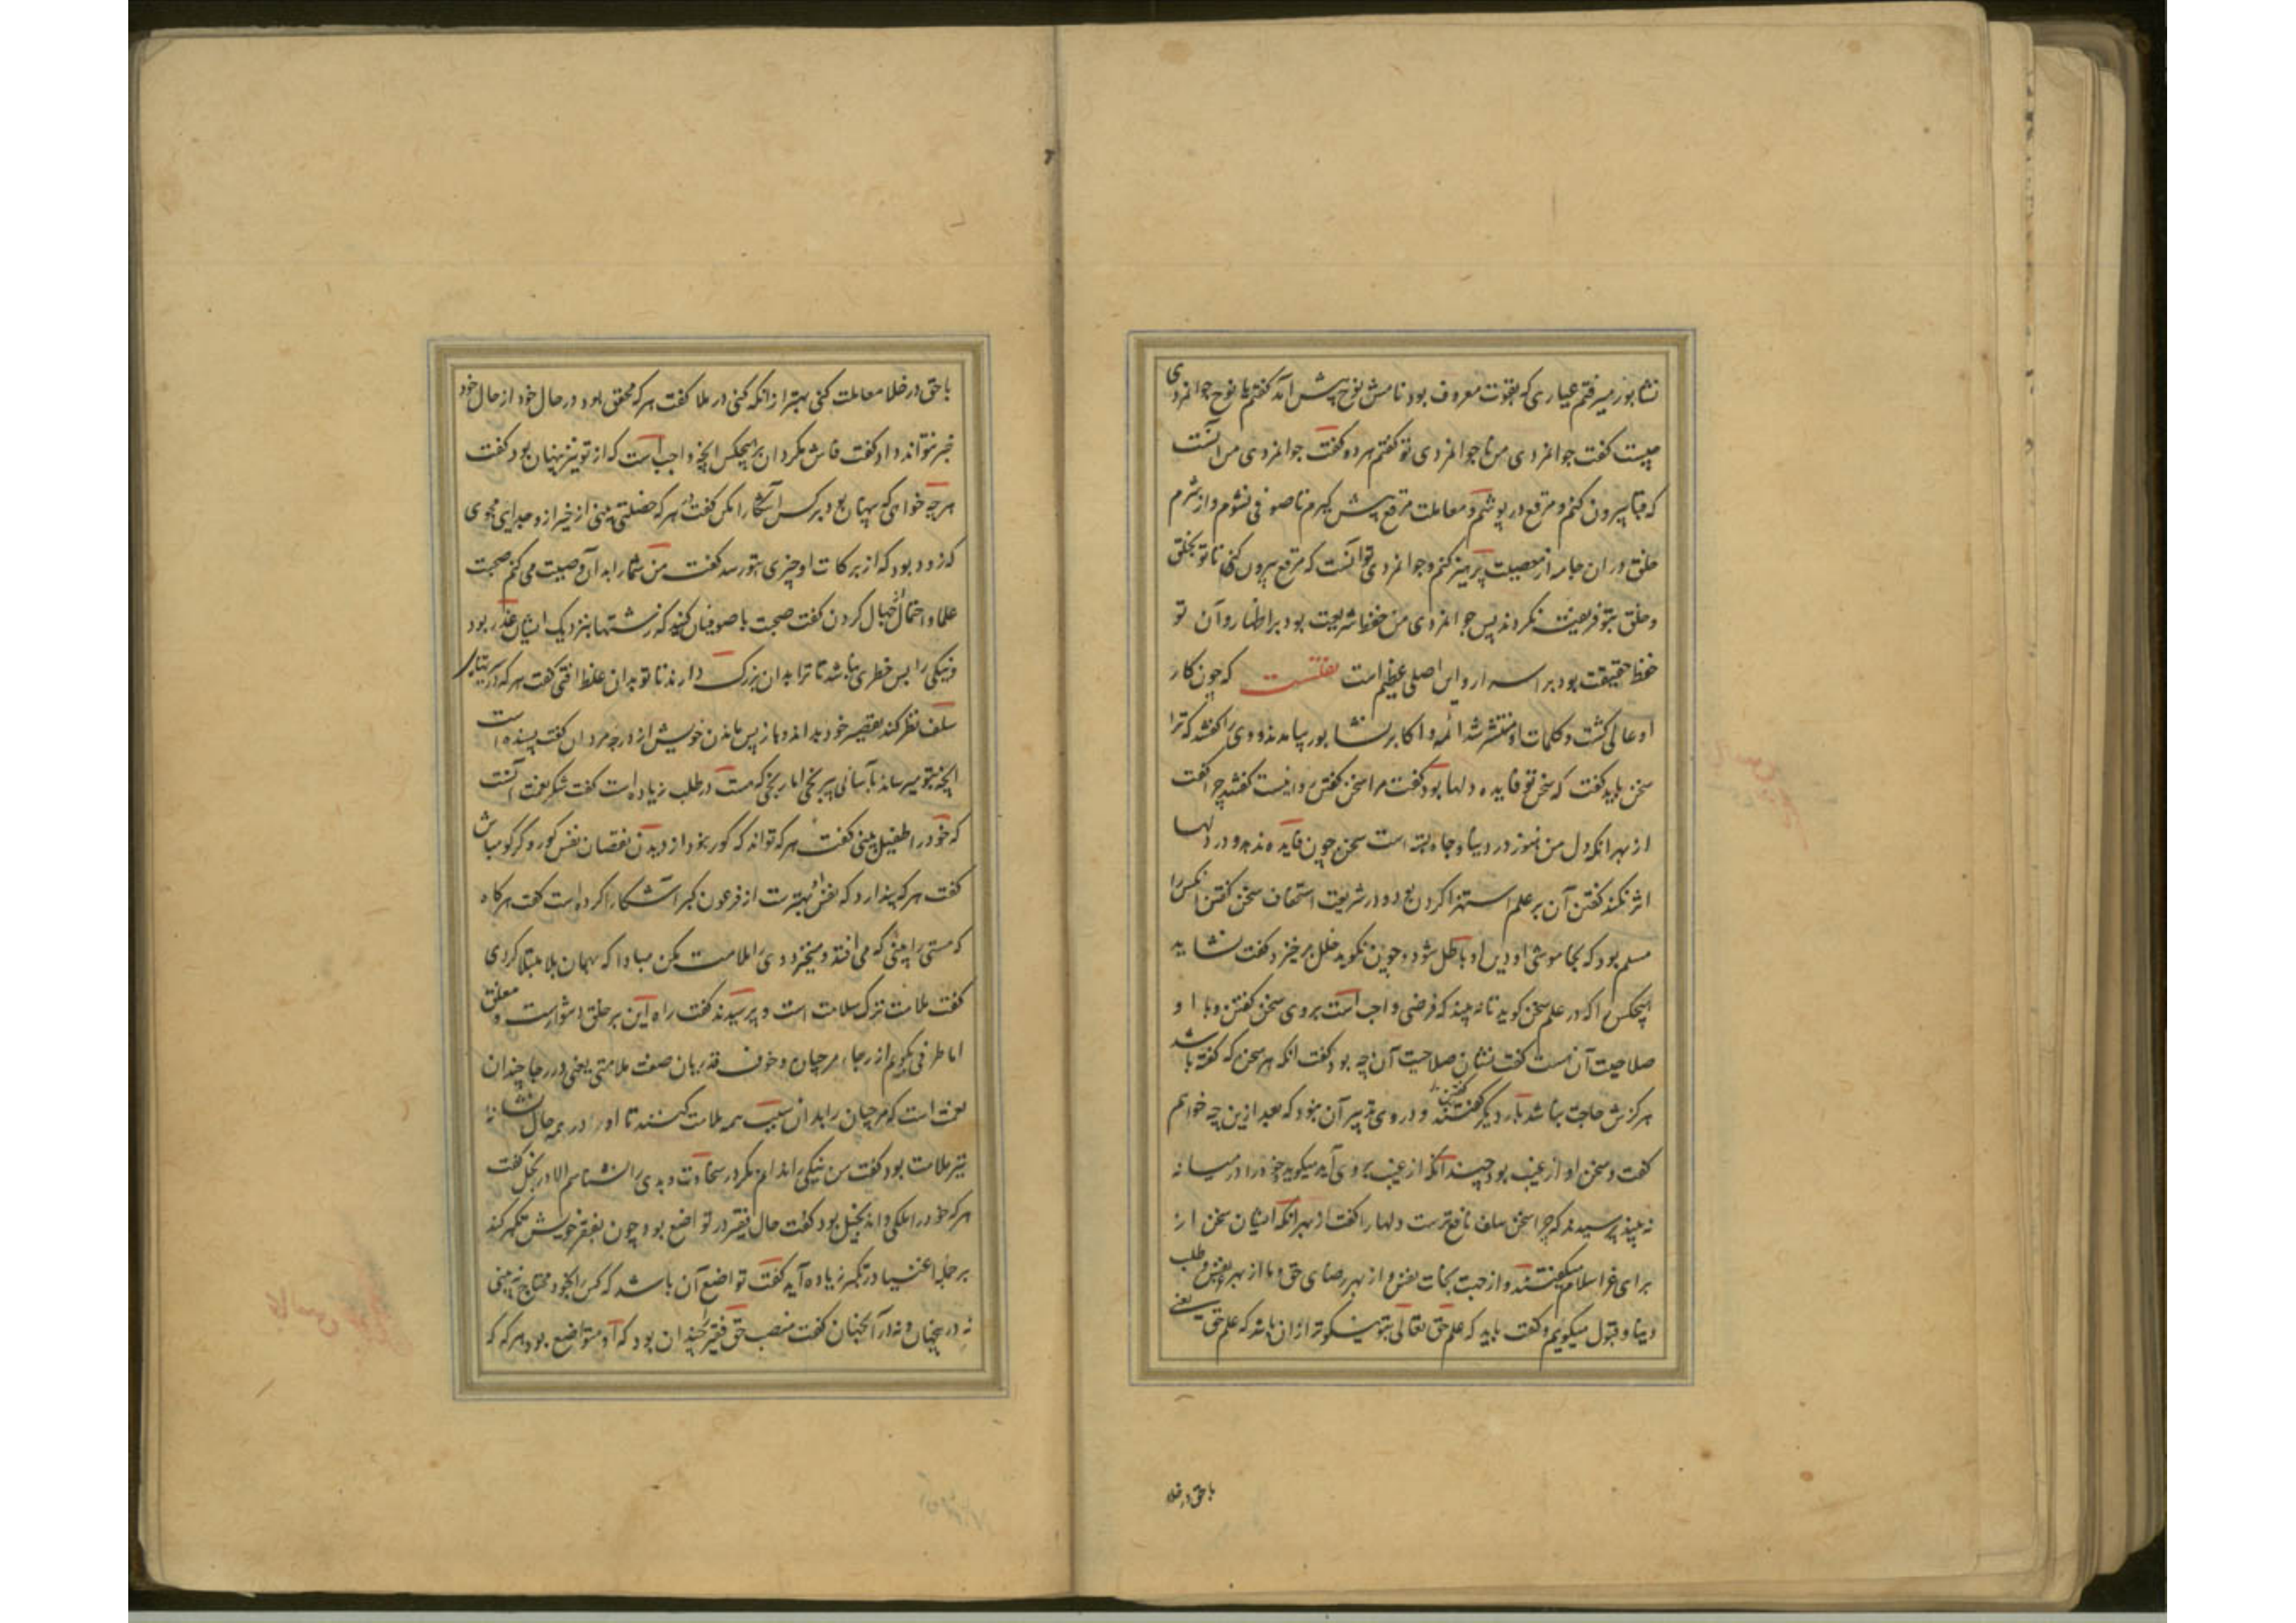 نشابور میرفتم عیاری که بفتوت معروف بود نامش نوح پیش آمد گفتم یا نوح جوانمردی
چیست گفت جوانمردی من یا جوانمردی تو گفتم هر دو گفت جوانمردی من آنست
که قبا بیرون کنم و مرقع درپوشم و معاملت مرقع پیش گیرم تا صوفی شوم و از شرم
خلق در ان جامه از معصیت پرهیز کنم و جوانمردی تو آنست که مرقع بیرون کنی تا تو بخلق
و خلق بتو فریفته نکردند پس جوانمردی من حفظ شریعت بود بر اظهار و آن تو
حفظ حقیقت بود بر اسرار و این اصلی عظیم است نقلست که چون کار
او عالی گشت و کلمات او منتشر شد ائمه و اکابر نشابور بیامدند و ویرا گفتند که ترا
سخن باید گفت که سخن تو فایده دلها بود گفت مرا سخن گفتن روا نیست گفتند چرا گفت
از بهر آنکه دل من هنوز در دنیا و جاه بسته است سخن چون فایده ندهد و در دلها
اثر نکند گفتن آن بر علم استهزا کردن بود و در شریعت استخفاف سخن گفتن آنکس را
مسلم بود که بخاموشی او دین او باطل شود و چون نگوید خلل برخیزد و گفت نشاید
هیچکس را که در علم سخن گوید تا نه بیند که فرضی واجب است بر وی سخن گفتن و با او
صلاحیت آن هست گفت نشان صلاحیت آن چه بود گفت انکه هر سخن که گفته باشد
هرگزش حاجت نباشد بار دیگر گفتن و در وی تدبیر آن نبود که بعد ازین چه خواهم
گفت و سخن او از غیب بود چندانکه از غیب بر وی آید میگوید خود را در میانه
نه بیند پرسیدند که چرا سخن سلف نافع ترست دلها را گفت از بهر آنکه ایشان سخن از
برای عز اسلام میگفتند و از جهت نجات نفس و از بهر رضای حق و ما از بهر عز نفس و طلب
دنیا و قبول میگویم و گفت باید که علم حق تعالی بتو نیکوتر ازان باشد که علم خلق یعنی
با حق در خلا
با حق در خلا معاملت کنی بهتر ازانکه کنی در ملا گفت هر که محقق بود در حال خود از حال خود
خبر نتواند داد گفت فاش مگردان بر هیچکس انچه واجب است که از تو نیز پنهان بود گفت
هرچه خواهی که پنهان بود بر کس آشکارا مکن گفت در هر که خصلتی بینی از خیر از و جدایی مجوی
که زود بود که از برکات او چیزی بتو رسد گفت من شما را بدان وصیت می کنم صحبت
علما و احتمال از جهال کردن گفت صحبت با صوفیان کنید که زشتیها بنزدیک ایشان عذر بود
و نیکی را بس خطری نباشد تا ترا بدان بزرگ دارند تا تو بدان غلط افتی گفت هر که در سیر
سلف نظر کند تقصیر خود بداند و باز پس ماندن خویش از درجه مردان گفت بسنده است
انچه بتو میرساند بآسانی بی رنجی اما رنجی که هست در طلب زیادت است گفت شکر نعمت آنست
که خود را طفیل بینی گفت هر که تواند که کور نبود از دیدن نقصان نفس کور و گر گو مباش
گفت هر که پندارد که نفس او بهترست از فرعون کبر آشکارا کرده است گفت هر کاه
که مستی را بینی که می افتد و میخیزد وی را ملامت مکن مبادا که بهمان بلا مبتلا کردی
گفت ملامت ترک سلامت است و پرسیدند گفت راه این بر خلق دشوارست و معلق
اما طرفی بگویم از رجاء مرجیان و خوف قدریان صفت ملامتی یعنی در رجا چندان
برفت است که مرجیان را بدان سبب همه ملامت کنند تا او را در همه حال نشانه
تیر ملامت بود گفت من نیکی را ندانم مگر در سخاوت و بدی را نشناسم الا در بخل گفت
هر که خود را ملکی داند بخیل بود گفت حال فقیر در تواضع بود چون بفقر خویش تکبر کند
بر جمله اغنیا در تکبر زیاده آید گفت تواضع آن باشد که کس را بخود محتاج نه بینی
نه درین جهان و نه در آن جهان گفت منصب حق فقیر چندان بود که او متواضع بود هر که که